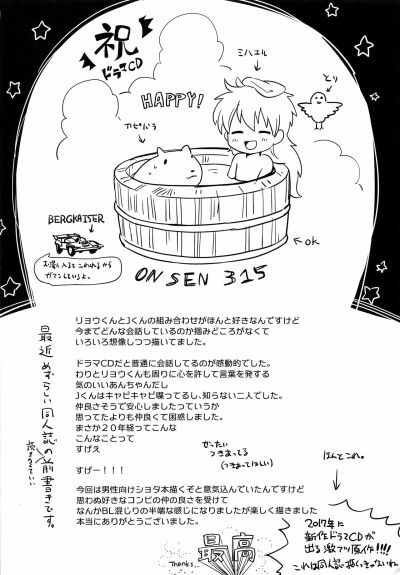 祝
ドラマCD
HAPPY!
ミハエル
とり
カピバラ
BERGKAISER
お湯に入るとこわれるから
ガマンしているよ。
OK
ONSEN 315
最近めずらしい同人誌の前書きです。
リョウくんとJくんの組み合わせがほんと好きなんですけど
今までどんな会話しているのか掴みどころがなくて
いろいろ想像しつつ描いてました。
ドラマCDだと普通に会話してるのが感動的でした。
わりとリョウくんも周りに心を許して言葉を発する
気のいいあんちゃんだし
Jくんはキャピキャピ喋ってるし、知らない二人でした。
仲良さそうで安心しましたっていうか
思ってたよりも仲良くて困惑しました。
まさか２０年経ってこんな
こんなことって
すげえ
すげー！！！
ぜったい
つきあってる
(つきあってほしい)
今回は男性向けショタ本描くぞと意気込んでいたんですけど
思わぬ好きなコンビの仲の良さを受けて
なんかBL混じりの半端な感じになりましたが楽しく描きました
本当にありがとうございました。
Thanks
最高
ほんとこれ。
2017年に
新作ドラマCDが
出る激アツ原作!!!!
これは同人誌描くっきゃないわ